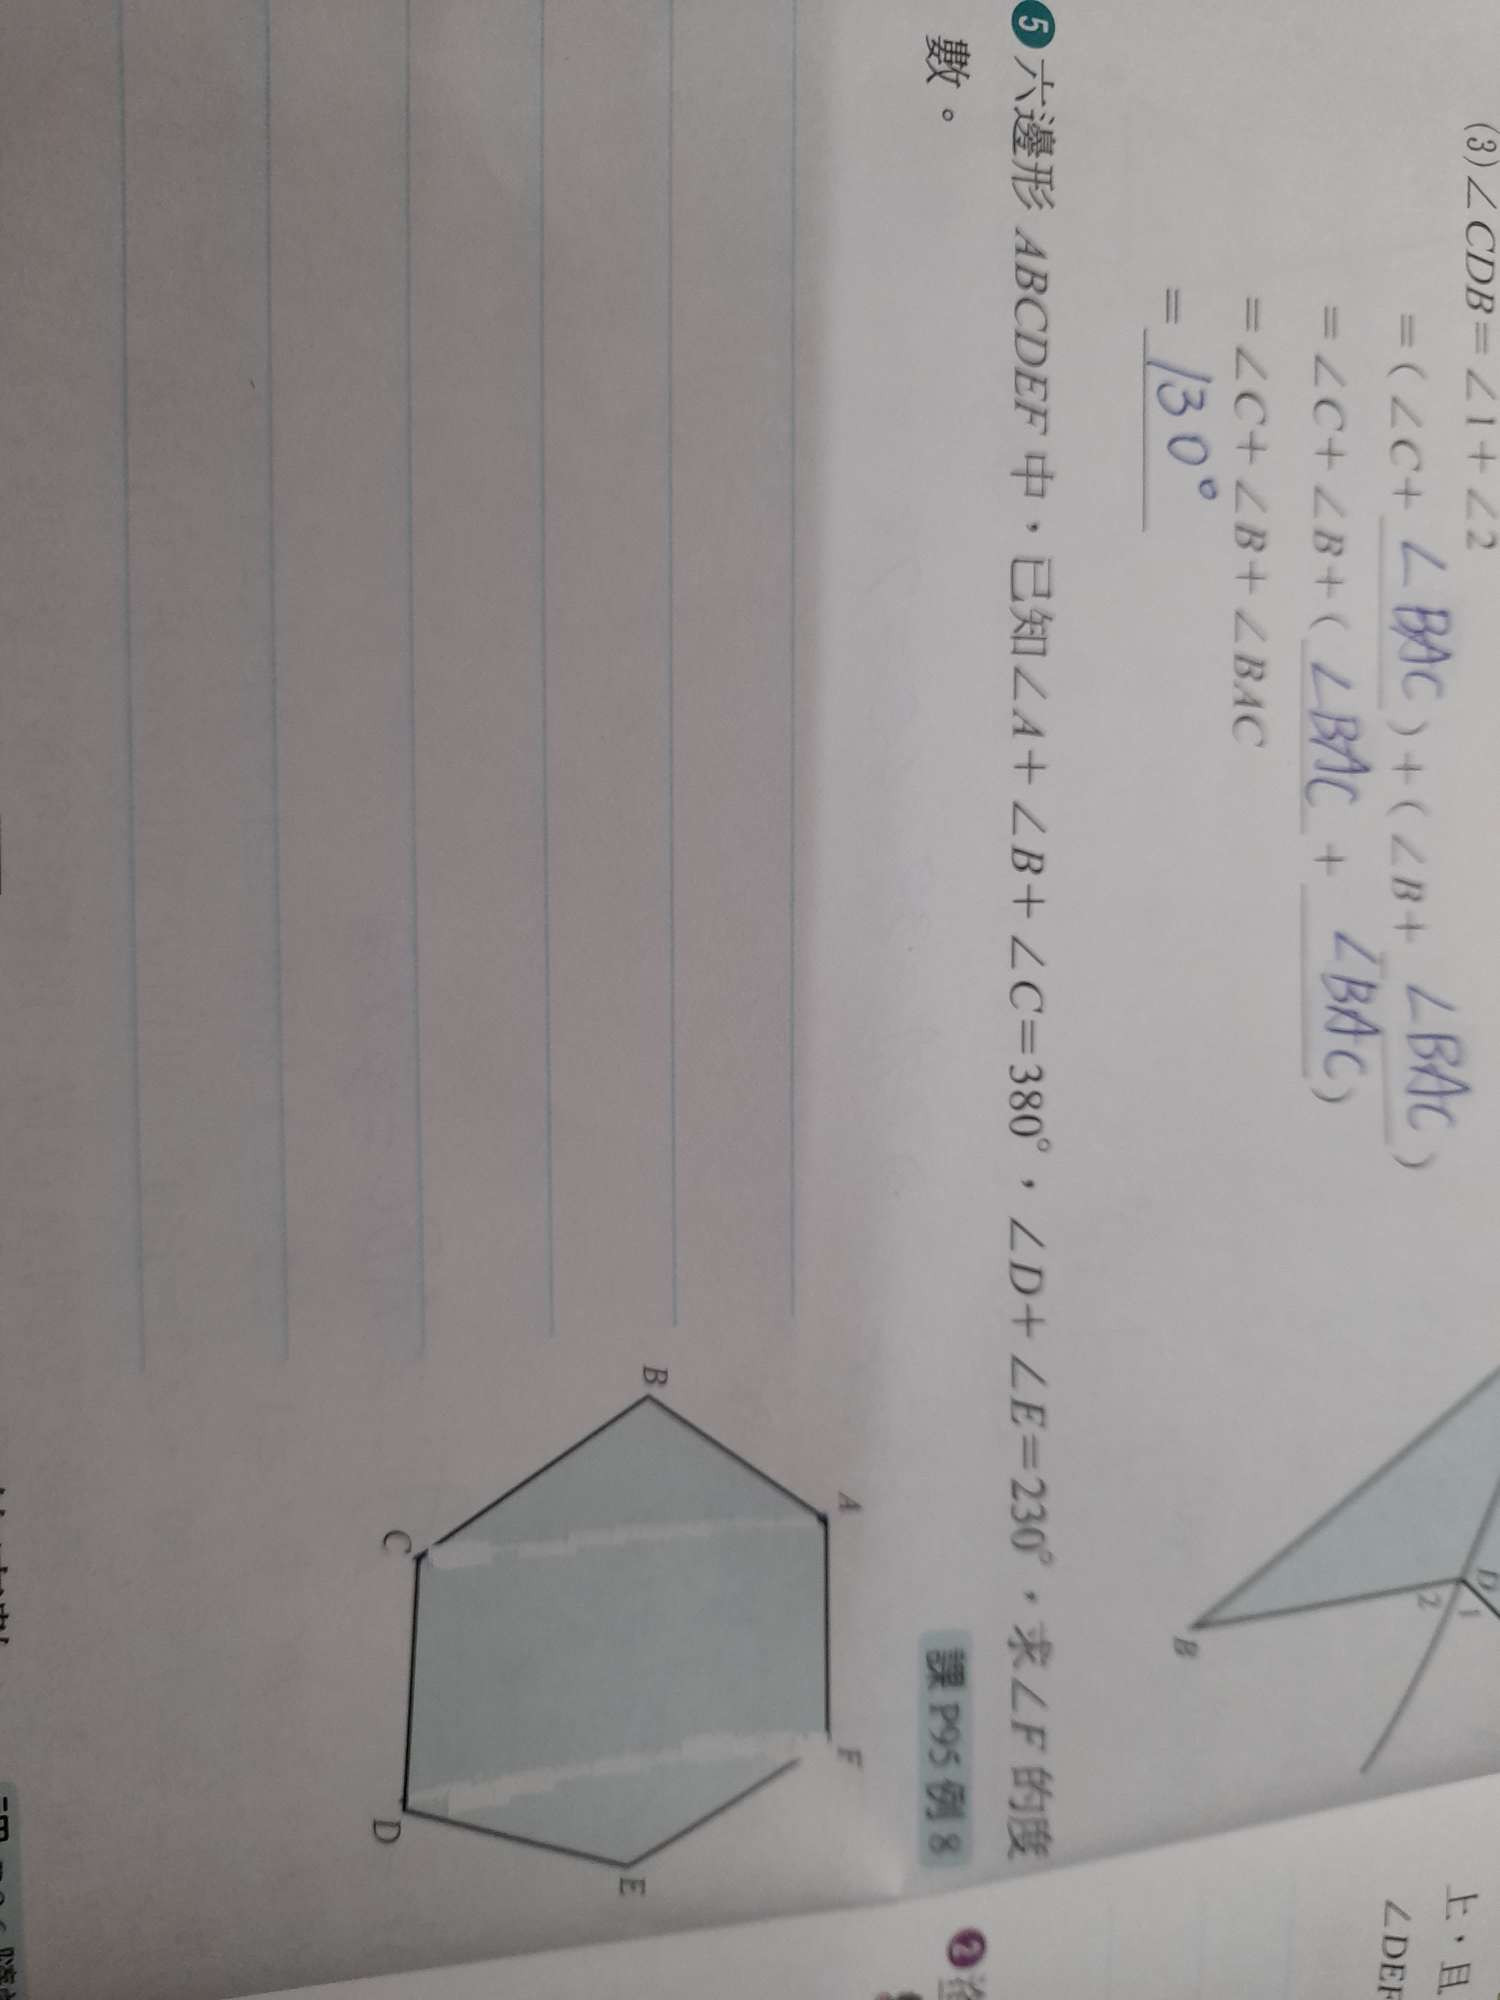 (3)∠CDB=∠1+∠2
=(∠C+∠BAC)+(∠B+∠BAC)
=∠C+∠B+(∠BAC+∠BAC)
=∠C+∠B+∠BAC
=130°
D
1
2
B
5 六邊形 ABCDEF 中，已知∠A+∠B+∠C=380°，∠D+∠E=230°，求∠F 的度
數。
課 P95 例 8
A
F
B
E
C
D
上，且
∠DEF
2